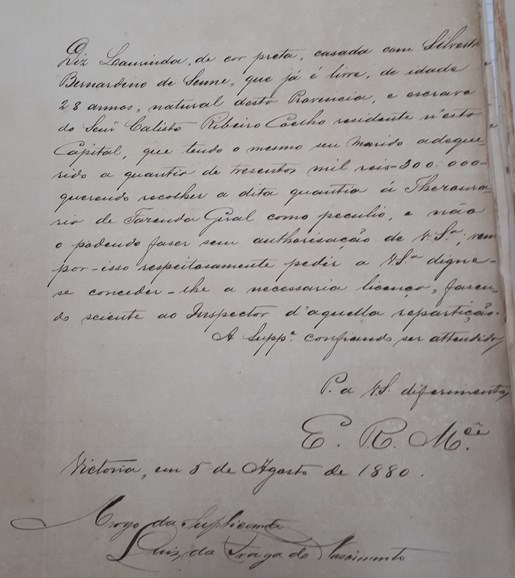 Diz Laurinda, de cor preta, casada com Silvestre
Bernardino de Senne, que já é livre, de idade
28 annos, natural desta Provincia, e escrava
do Senr Calisto Ribeiro Coelho residente n'esta
Capital, que tendo o mesmo seu marido adque-
rido a quantia de tresentos mil reis=300:000=
querendo recolher a dita quantia á Thesoura
ria de Fazenda Geral como peculio, e não
o podendo faser sem authorisação de V. Sª; vem
por-isso respeitosamente pedir a VSª digne-
se conceder-lhe a necessaria licença, fasen-
do sciente ao Inspector d'aquella repartição.
A Suppª confiando ser attendida
P. a V.S. diferimento
E. R. M.cê
Victoria, em 5 de Agosto de 1880.
Arogo da Suplicante
Luiz da Fraga do Nascimento